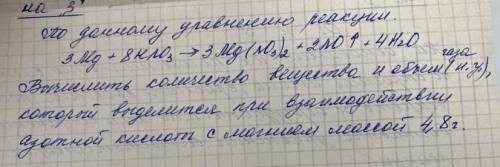 на "3"
По данному уравнению реакции.
3Mg + 8HNO₃ → 3Mg(NO₃)₂ + 2NO↑ + 4H₂O
Вычислить количество вещества и объем газа (н.у.),
который выделится при взаимодействии
азотной кислоты с магнием массой 4,8г.